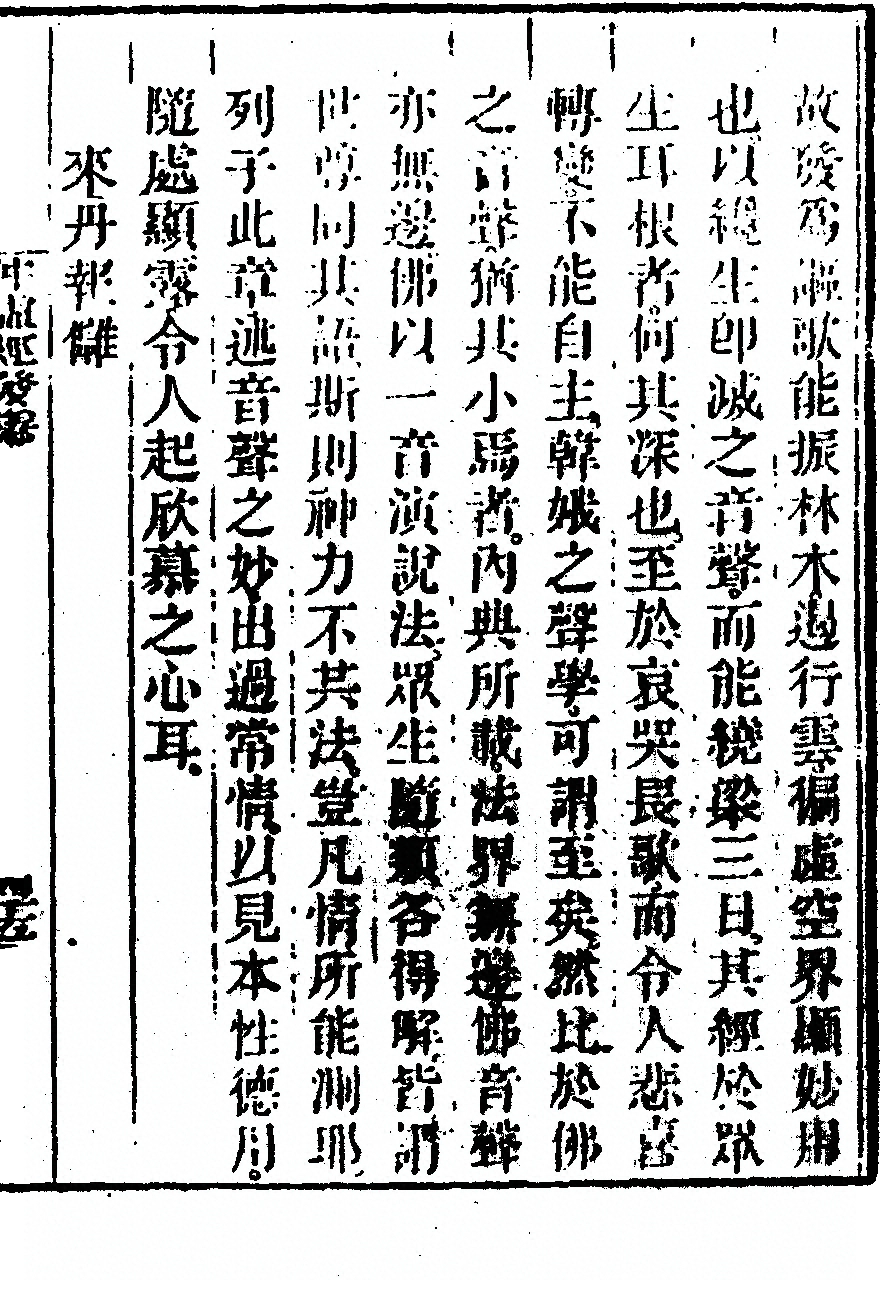 故發爲謳歌能振林木遏行雲徧虛空界顯妙用
也以纔生即滅之音聲而能繞梁三日其經於眾
生耳根者何其深也至於哀哭長歌而令人悲喜
轉變不能自主韓娥之聲學可謂至矣然比於佛
之音聲猶其小焉者內典所載法界無邊佛音聲
亦無邊佛以一音演說法眾生隨類各得解皆謂
世尊同其語斯則神力不共法豈凡情所能測耶
列子此章述音聲之妙出過常情以見本性德用
隨處顯露令人起欣慕之心耳
來丹報讎
沖虛經發隱
四五